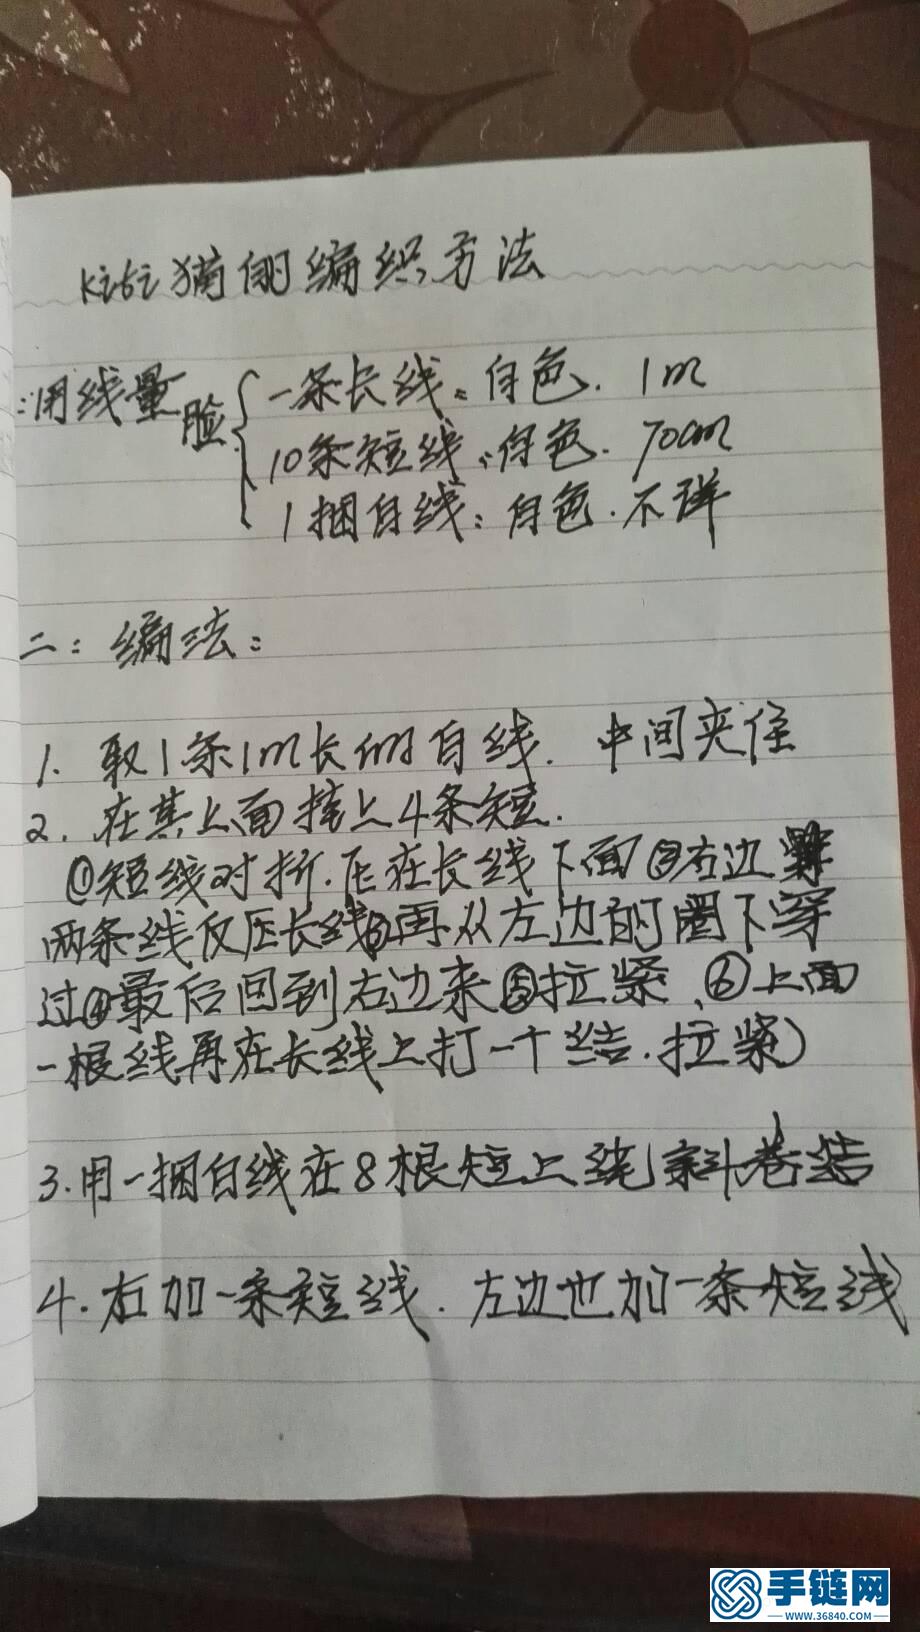 kiti猫的编织方法
：用线量 脸 { 一条长线：白色. 1m
10条短线：白色. 70cm
1捆白线：白色. 不详
二：编法：
1. 取1条1m长的白线. 中间夹住
2. 在其上面挂上4条短.
①短线对折.压在长线下面②右边
两条线反压长线③再从左边的圈下穿
过④最后回到右边来⑤拉紧、⑥上面
一根线再在长线上打一个结.拉紧）
3.用一捆白线在8根短上绕斜卷结
4.右加一条短线.左边也加一条短线
手链网
WWW.36840.COM